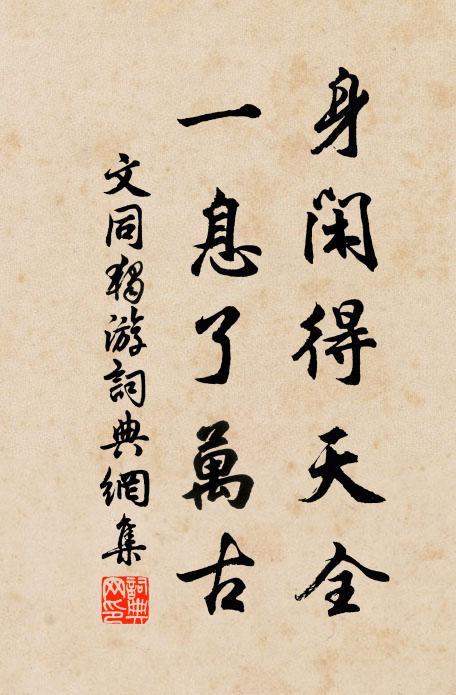 身閑得天全
一息了萬古
文同獨游詞典網集
詞典網印